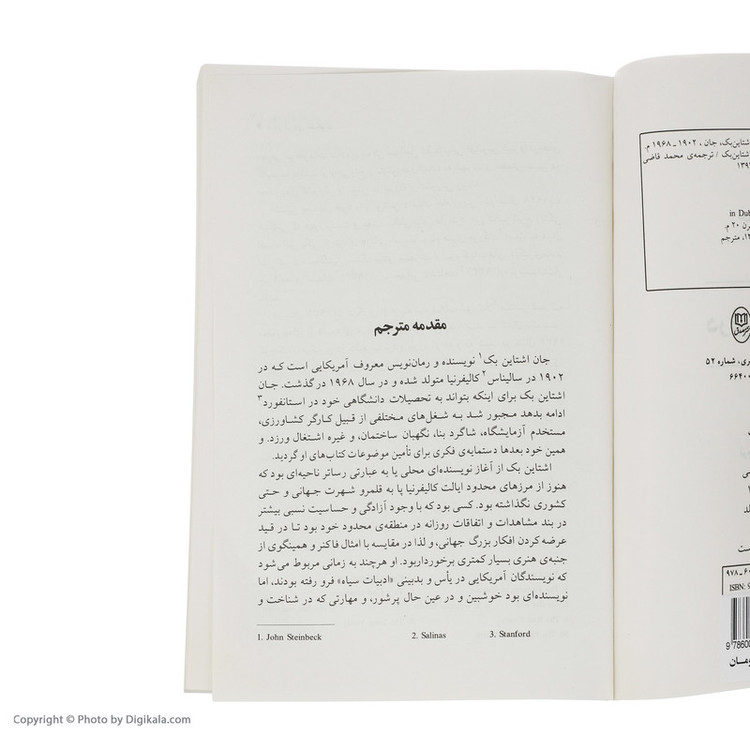 اشتاین‌بک، جان ، ۱۹۰۲ ـ ۱۹۶۸ م.
اشتاین‌بک / ترجمه‌ی محمد قاضی
in Dub
۲۰ م.
مترجم
شماره ۵۲
۶۶۴۰۰
۹۷۸ ـ ۶۰
ISBN: 9
9 78600
مقدمه مترجم
جان اشتاین بک۱ نویسنده و رمان‌نویس معروف آمریکایی است که در
۱۹۰۲ در سالیناس۲ کالیفرنیا متولد شده و در سال ۱۹۶۸ در گذشت. جان
اشتاین بک برای اینکه بتواند به تحصیلات دانشگاهی خود در استانفورد۳
ادامه بدهد مجبور شد به شغل‌های مختلفی از قبیل کارگر کشاورزی،
مستخدم آزمایشگاه، شاگرد بنا، نگهبان ساختمان، و غیره اشتغال ورزد. و
همین خود بعدها دستمایه‌ی فکری برای تأمین موضوعات کتاب‌های او گردید.
اشتاین بک از آغاز نویسنده‌ای محلی یا به عبارتی رساتر ناحیه‌ای بود که
هنوز از مرزهای محدود ایالت کالیفرنیا پا به قلمرو شهرت جهانی و حتی
کشوری نگذاشته بود. کسی بود که با وجود آزادگی و حساسیت نسبی بیشتر
در بند مشاهدات و اتفاقات روزانه در منطقه‌ی محدود خود بود تا در قید
عرضه کردن افکار بزرگ جهانی، و لذا در مقایسه با امثال فاکنر و همینگوی از
جنبه‌ی هنری بسیار کمتری برخورداربود. او هرچند به زمانی مربوط می‌شود
که نویسندگان آمریکایی در یأس و بدبینی «ادبیات سیاه» فرو رفته بودند، اما
نویسنده‌ای بود خوشبین و در عین حال پرشور، و مهارتی که در شناخت و
1. John Steinbeck 2. Salinas 3. Stanford
Copyright © Photo by Digikala.com